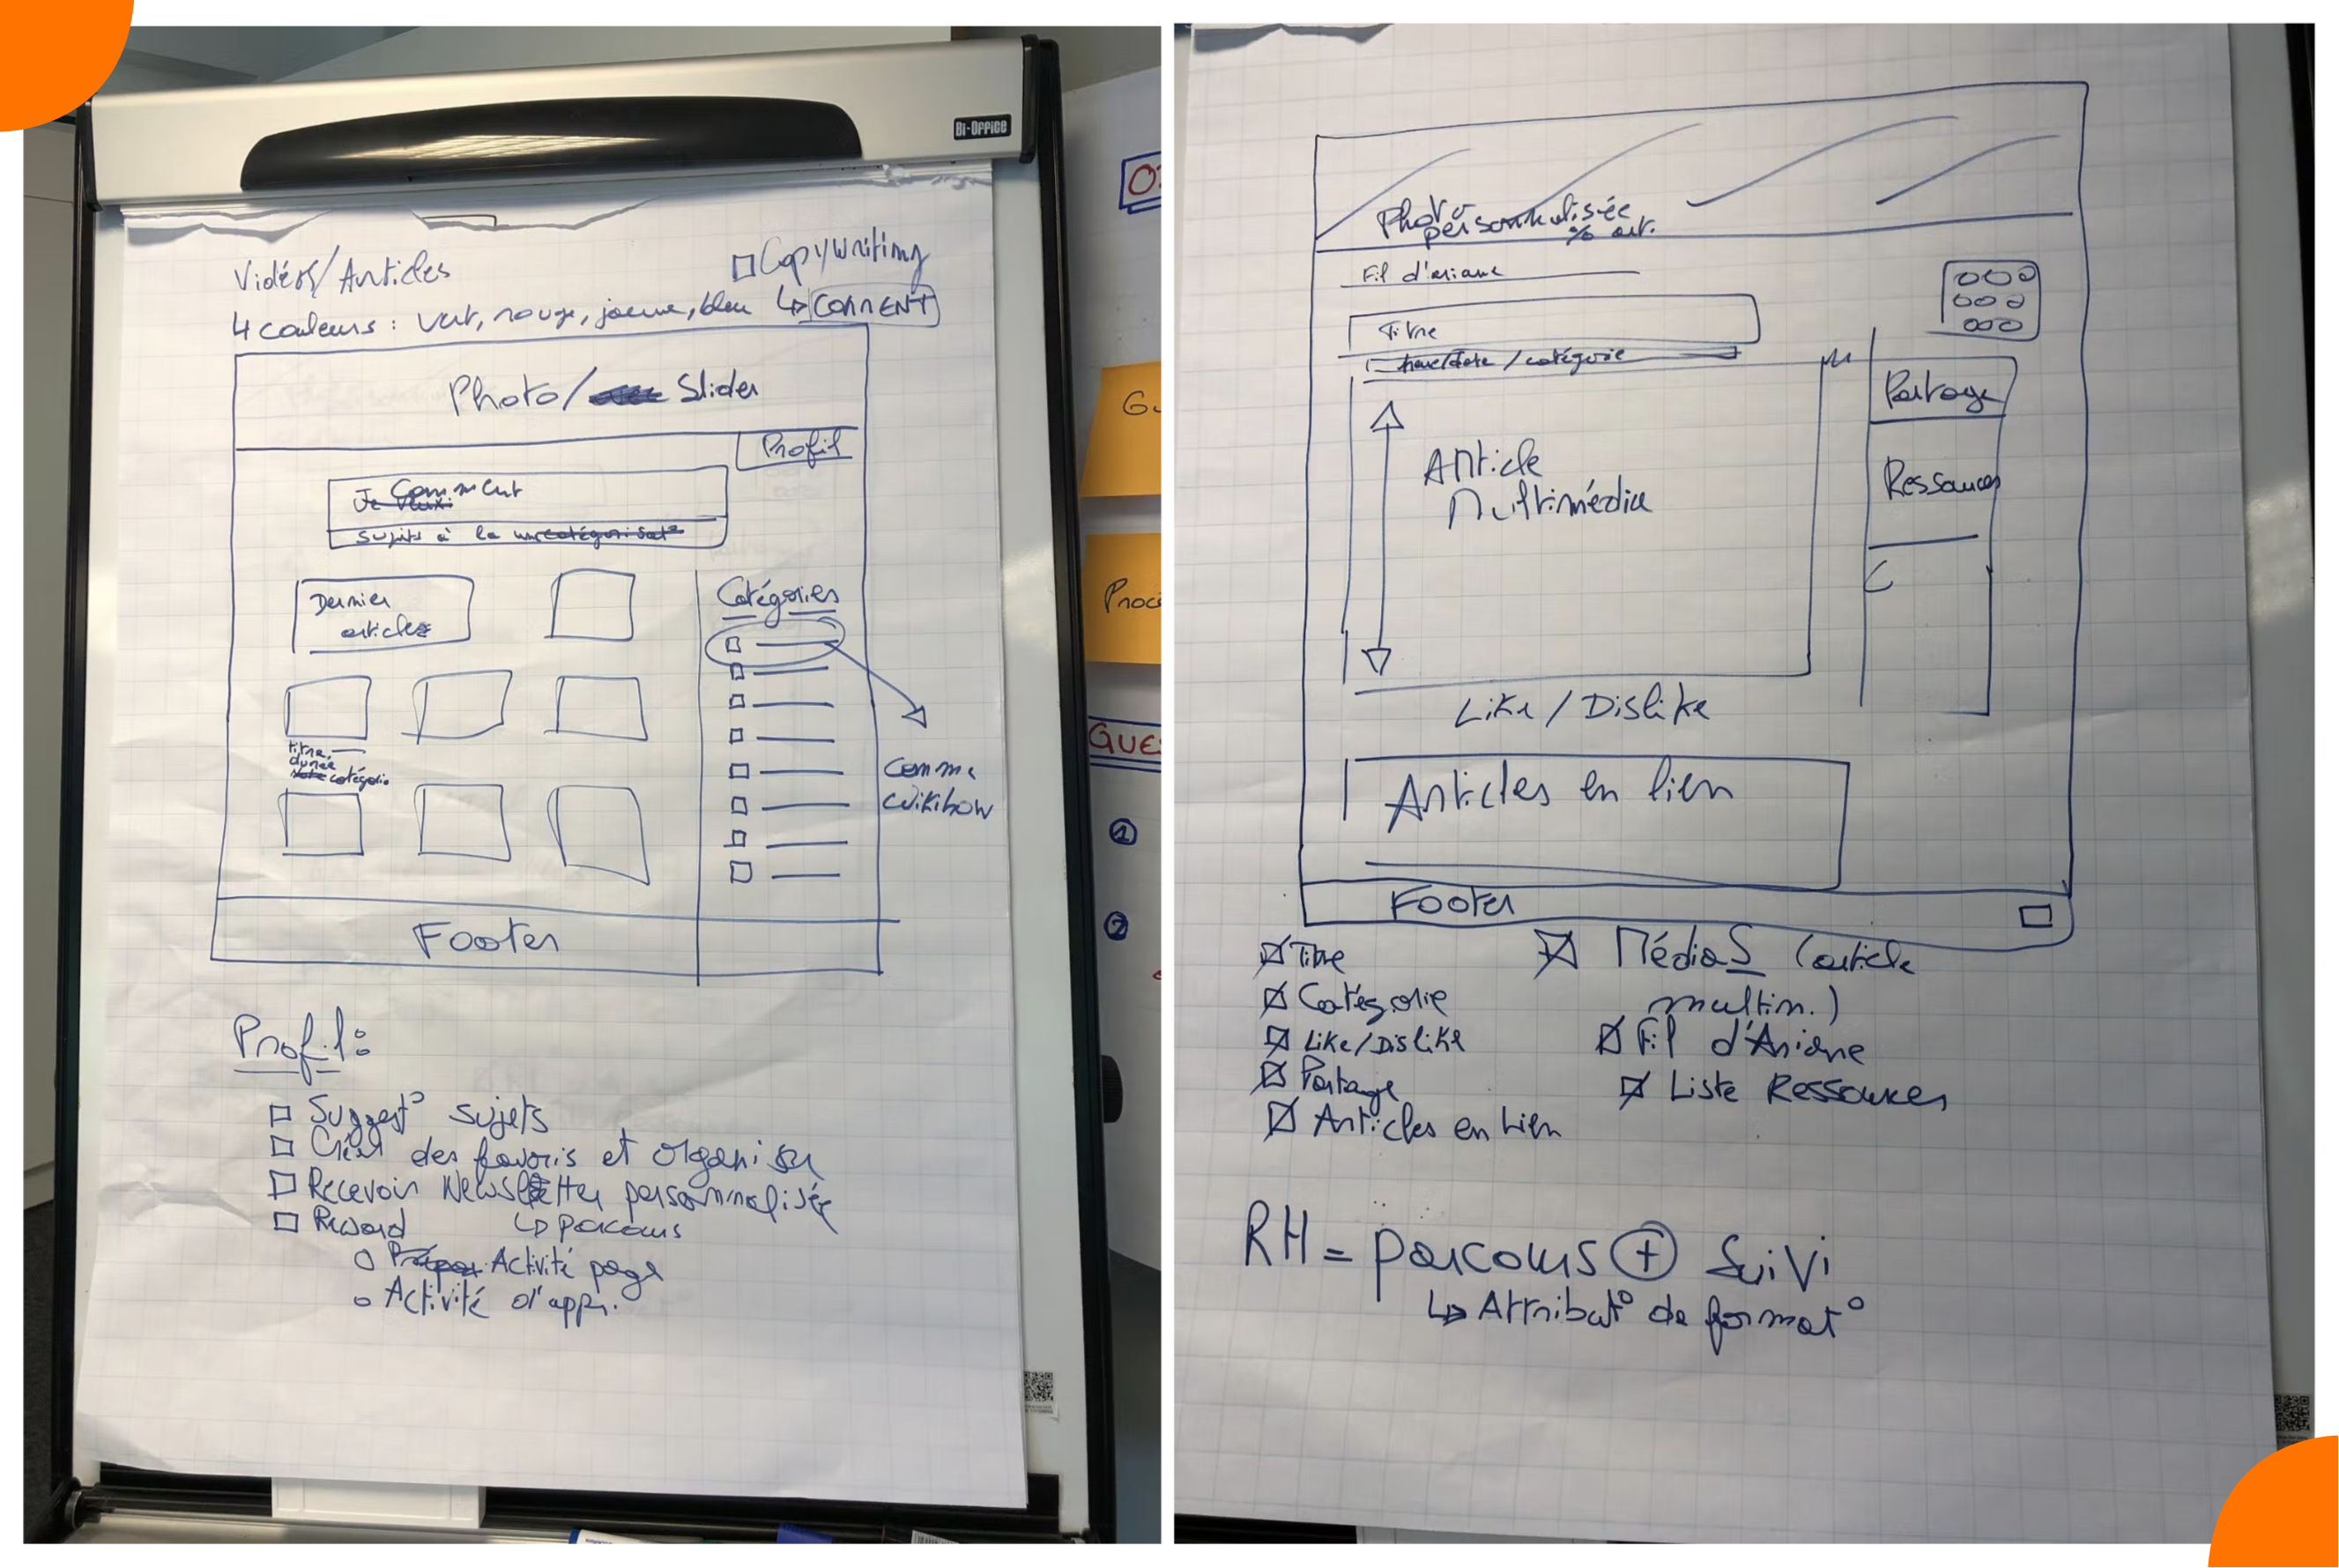 Bi-Office
Vidéos/Articles
☐ Copywriting
4 couleurs : vert, rouge, jaune, bleu ↳ COMMENT
Photo/ Slider
Profil
Comment
Je veux:
Sujets à la une catégorisat°
Dernier
articles
Catégories
titre
durée
Note catégorie
Comme
wikihow
Footer
Profil:
☐ Suggest° sujets
☐ Créer des favoris et organiser
☐ Recevoir Newsletter personnalisée
☐ Reward ↳ parcours
○ Activité page
○ Activité d'appr.
Gu
Proc
QUE
1
2
Photo
personnalisée
% art.
Fil d'ariane
Titre
/date / catégorie
Article
Multimédia
Partage
Ressources
Like / Dislike
Articles en lien
Footer
☒ Titre
☒ Catégorie
☒ Like/Dislike
☒ Partage
☒ Articles en lien
☒ Médias (article
multim.)
☒ Fil d'Ariane
☒ Liste Ressources
RH = parcours ⊕ Suivi
↳ Attribut° de format°